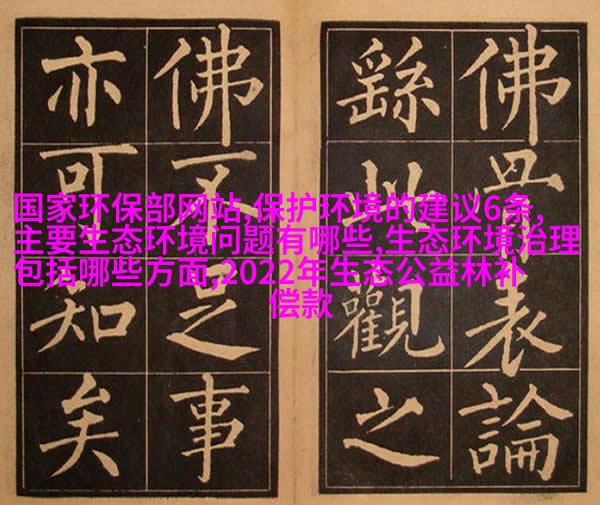 国家环保部网站,保护环境的建议6条,
主要生态环境问题有哪些,生态环境治理
包括哪些方面,2022年生态公益林补
偿款
佛骨表論
繇此觀之
佛不足事
亦可知矣